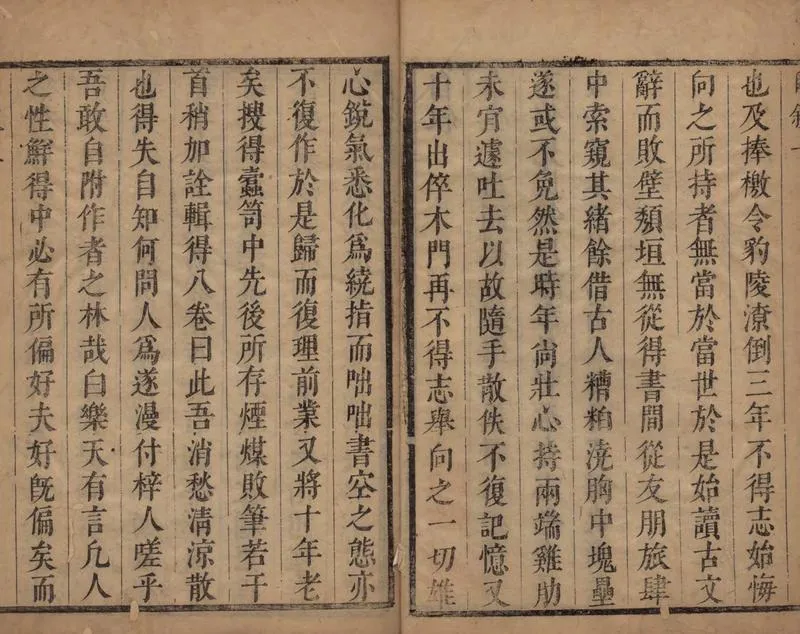 也及捧檄令豹陵潦倒三年不得志始悔
向之所持者無當於當世於是始讀古文
辭而敗壁頹垣無從得書間從友朋旅肆
中索窺其緒餘借古人糟粕澆胸中塊壘
遂或不免然是時年尚壯心持兩端雞肋
未宜遽吐去以故隨手散佚不復記憶又
十年出倅木門再不得志舉向之一切雄
心銳氣悉化爲繞指而咄咄書空之態亦
不復作於是歸而復理前業又將十年老
矣搜得蠹笥中先後所存煙煤敗筆若干
首稍加詮輯得八卷曰此吾消愁清涼散
也得失自知何問人爲遂漫付梓人嗟乎
吾敢自附作者之林哉白樂天有言凡人
之性鮮得中必有所偏好夫好旣偏矣而